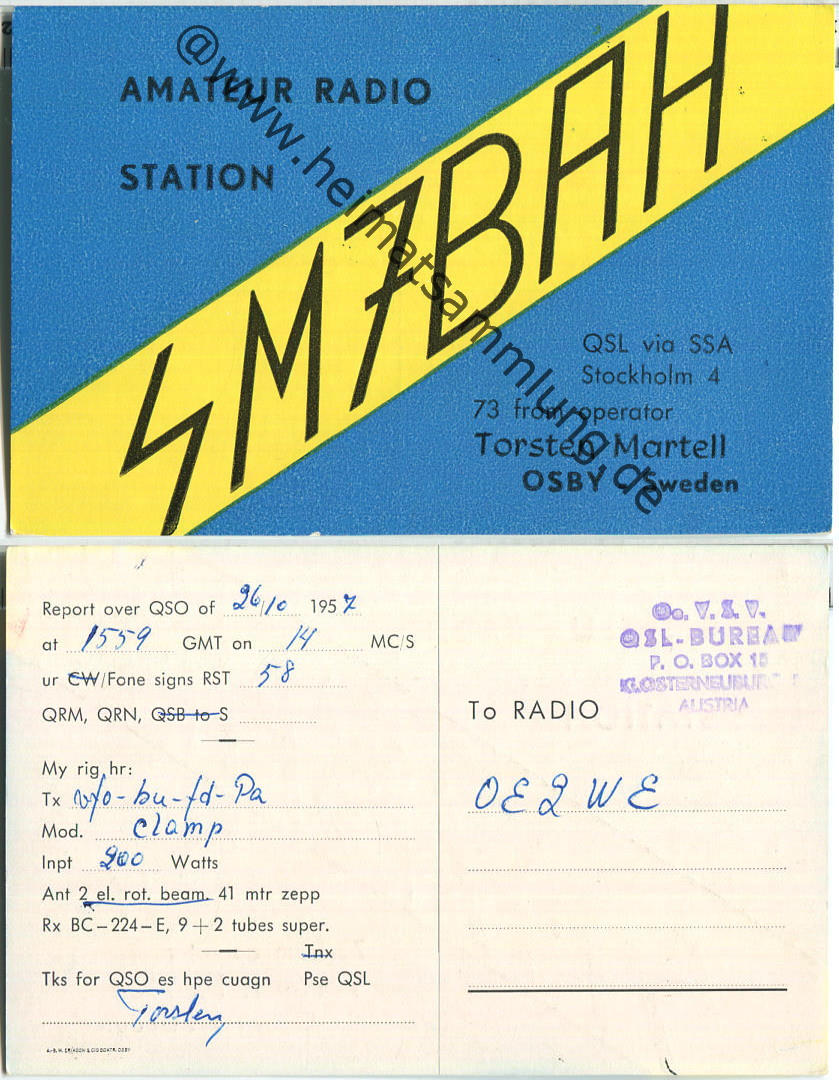 @www.heimatsammlung.de
AMATEUR RADIO
STATION
SM7BAH
QSL via SSA
Stockholm 4
73 from operator
Torsten Martell
OSBY Sweden
Report over QSO of 26/10 1957
at 1559 GMT on 14 MC/S
ur CW/Fone signs RST 58
QRM, QRN, QSB to S
My rig hr:
Tx vfo-bu-fd-Pa
Mod. clamp
Inpt 200 Watts
Ant 2 el. rot. beam. 41 mtr zepp
Rx BC-224-E, 9+2 tubes super.
Tnx
Tks for QSO es hpe cuagn Pse QSL
Torsten
Oe. V. S. V.
QSL-BUREAU
P. O. BOX
KLOSTERNEUBURG
AUSTRIA
To RADIO
OE2WE